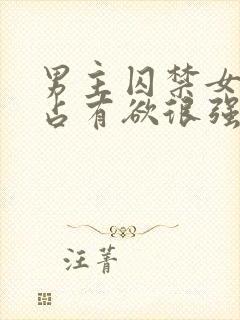 男主囚禁女
占有欲很强
汪菁